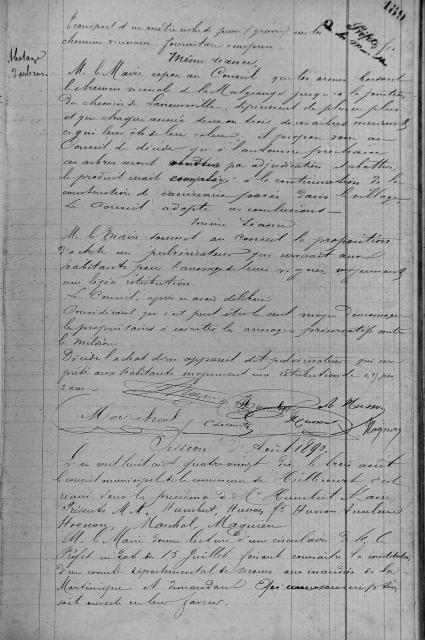 181
Transport d'un mètre cube de pierre (gravier) sur les
chemins vicinaux. fourniture comprise.
Même séance.
Abatage
d'arbres
M. le Maire expose au Conseil que les arbres bordant
le chemin vicinal de la jusqu'à la jonction
du chemin de Laneuveville, dépérissent de plus en plus
et que chaque année deux ou trois de ces arbres meurent
ce qui leur ôte de leur valeur; il propose donc au
Conseil de décider qu'à l'automne prochain
ces arbres seront vendus par adjudication et abattus,
le produit serait employé à la continuation de la
construction de caniveaux pavés dans le village.
Le Conseil adopte ces conclusions.
même séance
M. le Maire soumet au Conseil la proposition
d'achat d'un pulvérisateur qui servirait aux
habitants pour l'arrosage de leurs vignes moyennant
une légère rétribution
Le Conseil, après en avoir délibéré
Considérant que c'est peut être le seul moyen d'encourager
les propriétaires à exécuter les arrosages préservatifs contre
le mildiou
Décide l'achat d'un appareil dit pulvérisateur qui sera
prêté aux habitants moyennant une rétribution de
Humbert
Husson
Marchal
Husson
Hognon
Session d'Août 1890.
L'an mil huit cent quatre vingt dix, le trois août
le conseil municipal de la commune de s'est
réuni sous la présidence de Mr Humbert Maire
Présents M.M. Humbert, Husson, Husson
Hognon, Marchal, Maguien
M. le Maire donne lecture d'une circulaire de M. le
Préfet en date du 15 Juillet faisant connaître la constitution
d'un comité départemental de secours aux incendiés de la
Martinique et demandant qu'une souscription
soit ouverte en leur faveur.